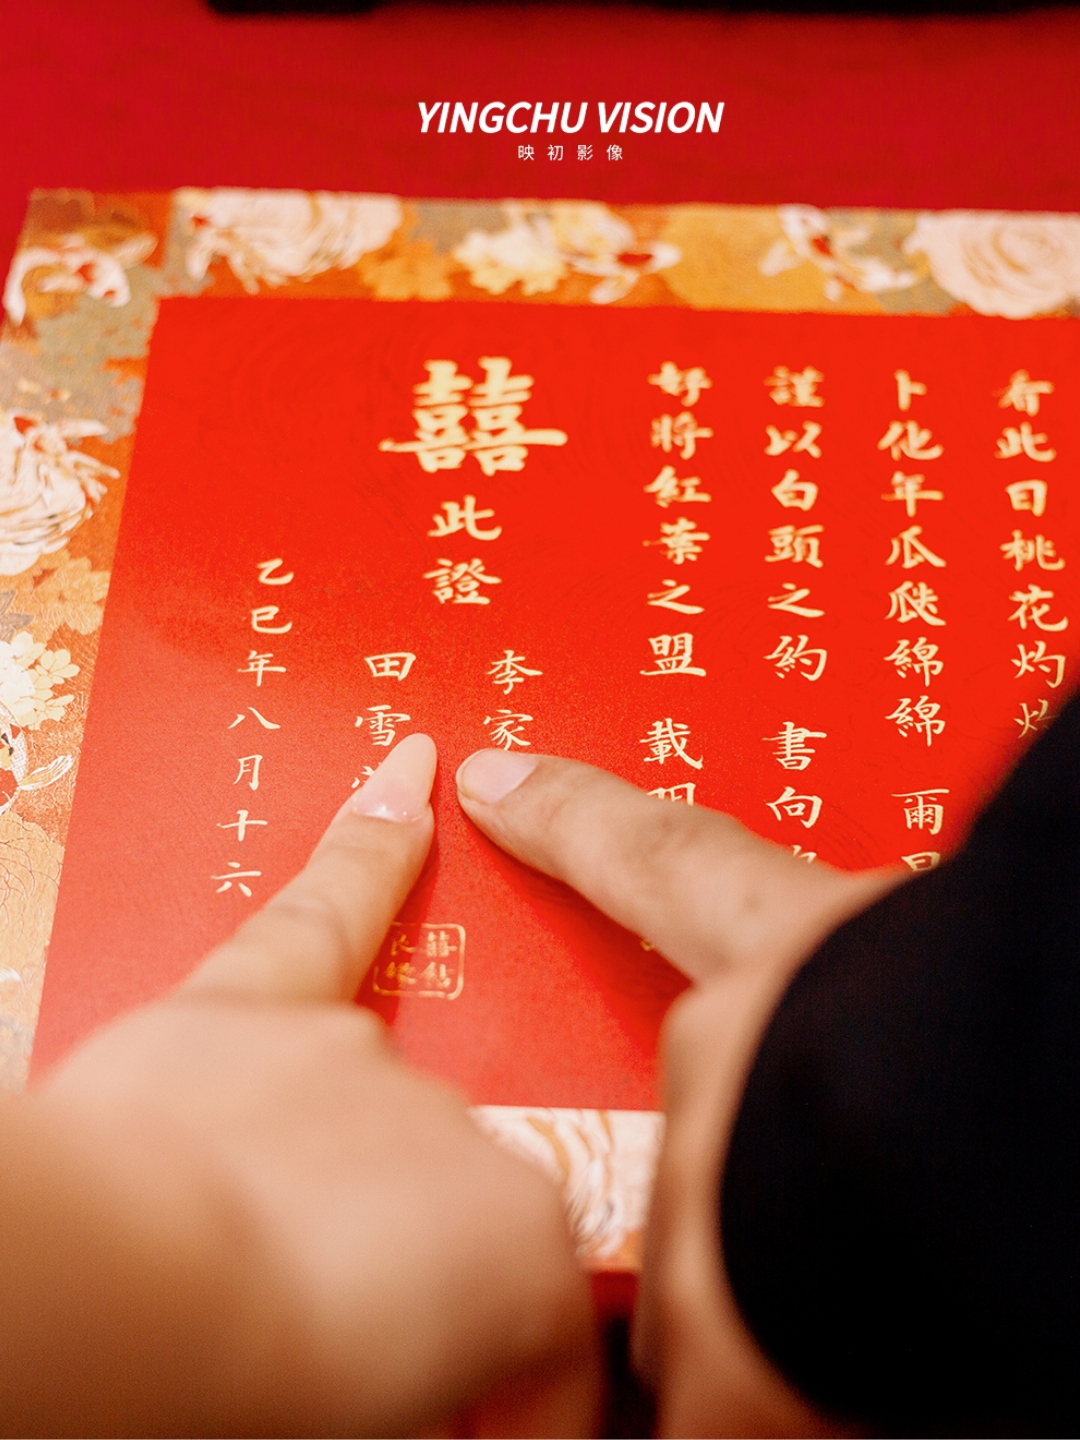 YINGCHU VISION
映初影像
看此日桃花灼灼
卜他年瓜瓞綿綿 爾
謹以白頭之約 書向
好將紅葉之盟 載
囍此證
李家
田雪
乙巳年八月十六
囍結
良緣